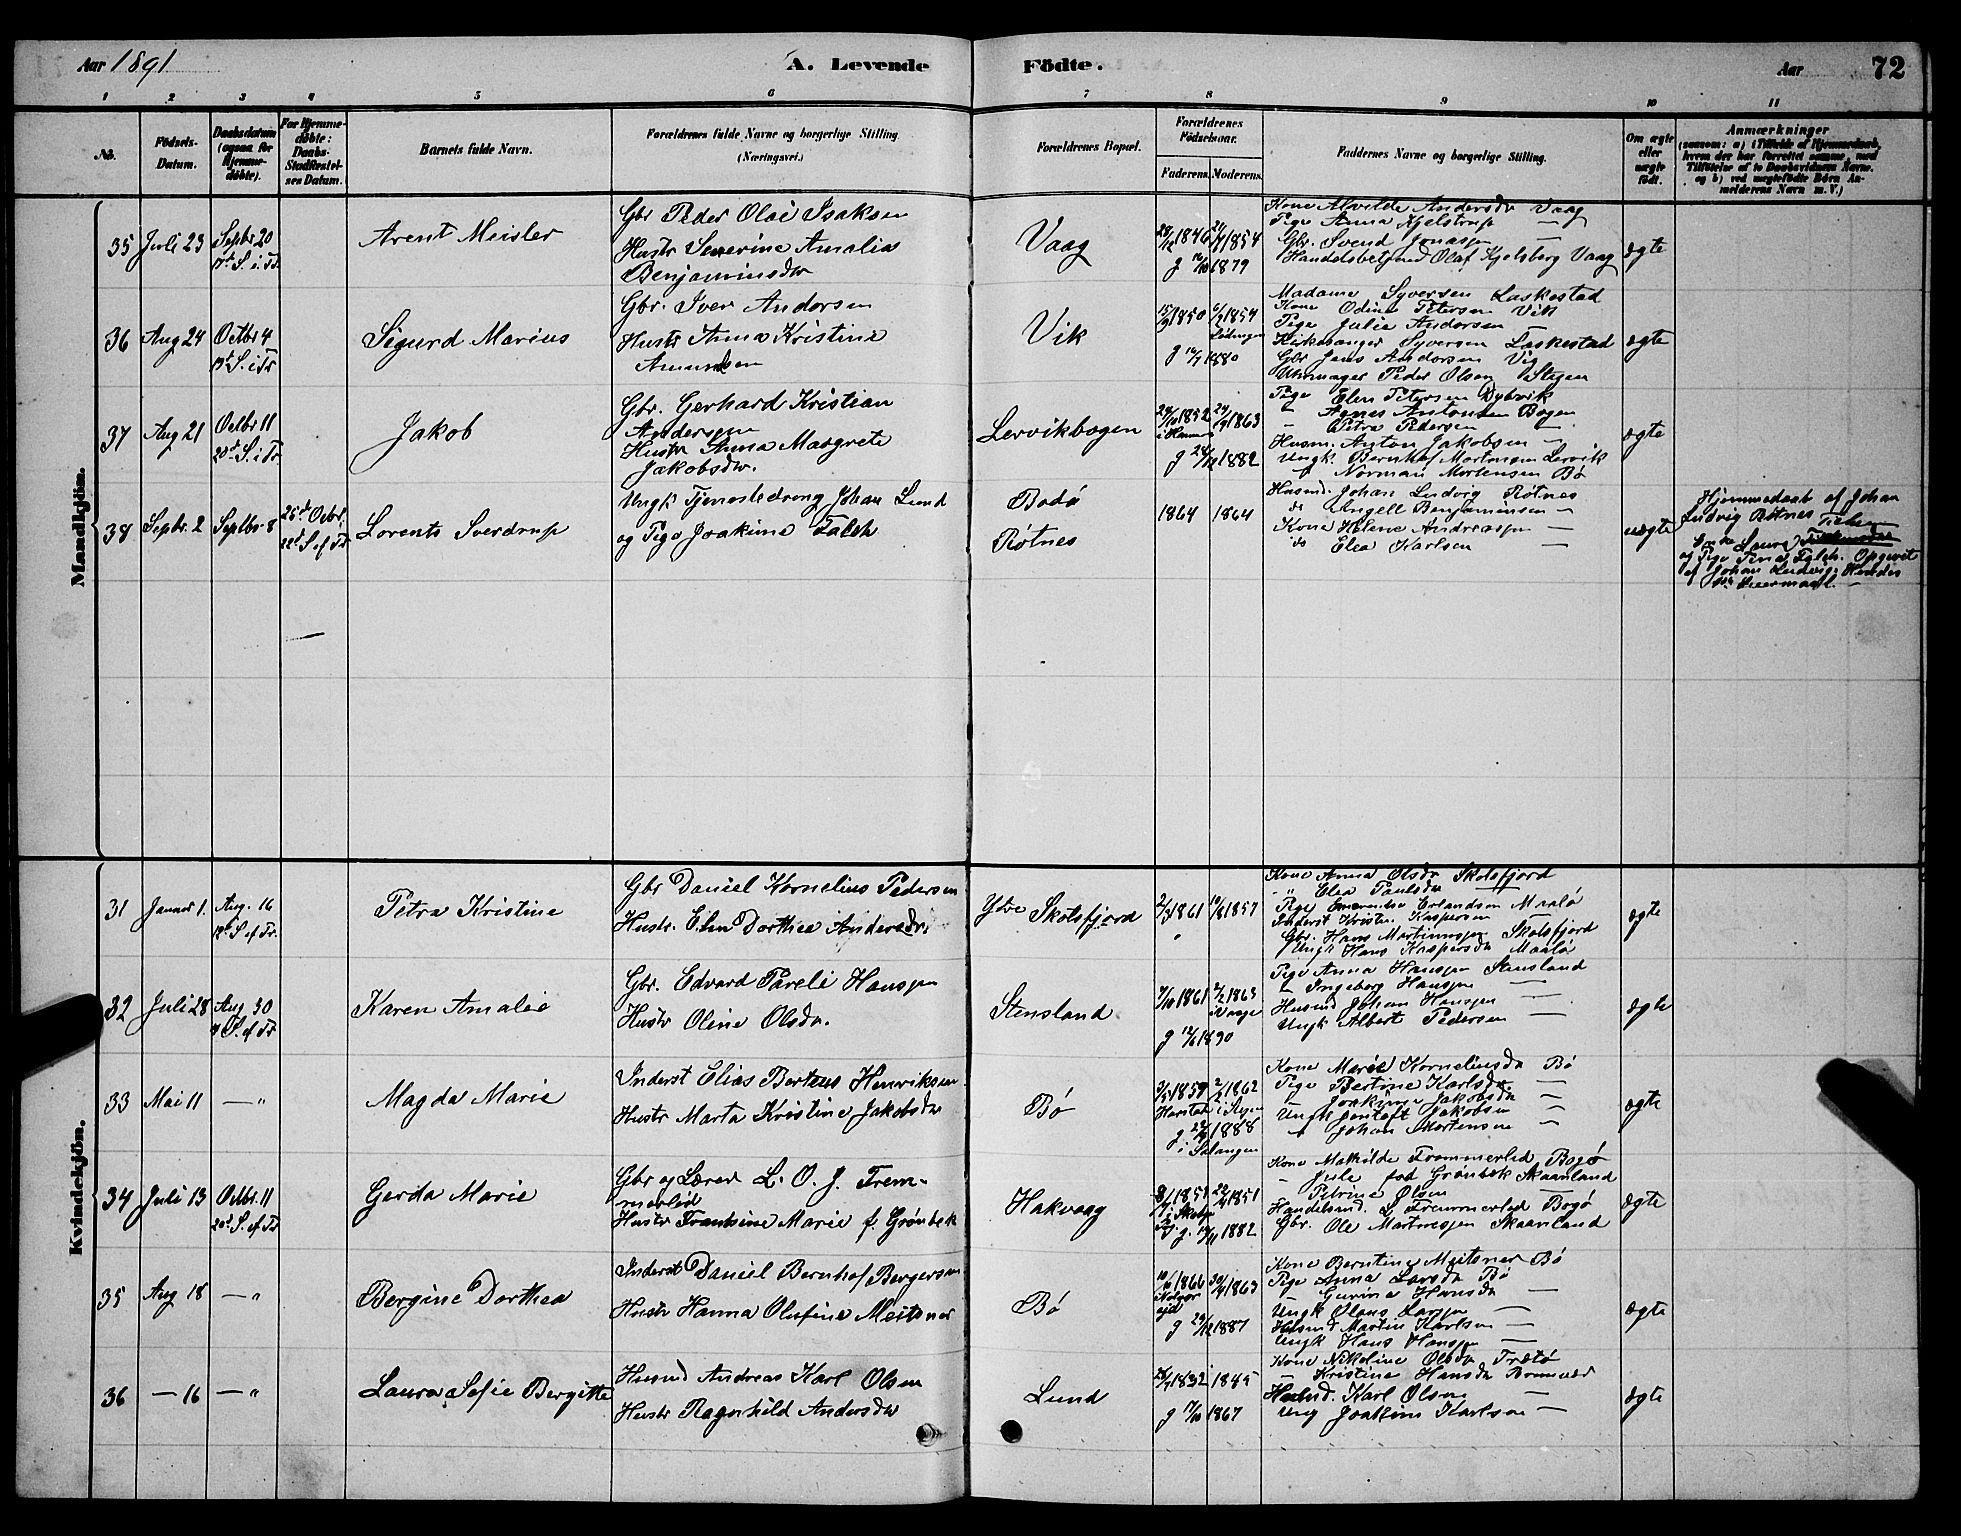 Aar 1891
A. Levende
Födte.
Aar
72
1
2
3
4
5
6
7
8
9
10
11
No.
Födsels-
Datum.
Daabsdatum
(ogsaa for
Hjemme-
döbte).
For Hjemme-
döbte:
Daabs-
Stadfæstel-
ses Datum.
Barnets fulde Navn.
Forældrenes fulde Navne og borgerlige Stilling
(Næringsvei.)
Forældrenes Bopæl.
Forældrenes
Födselsaar.
Faderens.
Moderens.
Faddernes Navne og borgerlige Stilling.
Om ægte
eller
uægte
födt.
Anmærkninger
(saasom: a) i Tilfælde af Hjemmedaab,
hvem der har forrettet samme, med
Tilföielse af to Daabsvidners Navne.
og b) ved uægtefödte Börn An-
melderens Navn m. V.)
Mandkjön.
35
Juli 23
Septbr 20
17de S. i Tr.
Arent Meisler
Gbr Peder Olai Isaksen
Hustr Severine Amalia
Benjaminsdtr
Vaag
28/12 1846
1854
g 1879
Kone Alvilde Andersdr Vaag
Pige Anna Kjelstrup —
Gbr. Svend Jonassen —
Handelsbetjend Olaf Kjelsberg Vaag
ægte
36
Aug 24
Octbr 4
19de S. i Tr
Sigurd Marius
Gbr. Iver Andorsen
Hustr Anna Kristine
Amundsen
Vik
15/9 1850
1854
Lödingen
g 1880
Madame Syversen Laskestad
Kone Odine Petersen Vik
Pige Julie Andorsen
Kirkesanger Syversen Laskestad
Gbr Jens Andorsen Vig
Uhrmager Peder Olsen Stegen
ægte
37
Aug 21
Octbr 11
20de S. i Tr
Jakob
Gbr. Gerhard Kristian
Andersen
Hustr Anna Margrete
Jakobsdtr.
Lervikbogen
1852
i Hammerø
1863
g 1882
Pige Elen Petersen Dybvik
" Agnes Antonsen Bogen
" Petra Pedersen —
Husm. Anton Jakobsen —
Ungk. Bernhof Martinsen Lervik
" Norman Mortensen Bö
ægte
38
Septbr. 2
Septbr 8
25de Octbr
22de S. ef Tr
Lorents Sverdrup
Ungk Tjenestedreng Johan Lund
og Pige Joakime Falch
Bodø
Røtnes
1864
1864
Husmd. Johan Ludvig Røtnes
do Engell Benjaminsen —
Kone Helene Andreassen —
do Elea Karlsen —
uægte
Hjemmedaab af Johan
Ludvig Røtnes
og Pige Tina Falch. Opgivet
af Johan Ludvig.
1ste Leiermaal. —
Kvindekjön.
31
Januar 1.
Aug. 16
12te S. ef Tr.
Petra Kristine
Gbr Daniel Kornelius Pedersen
Hustr. Elen Dorthea Andersdtr.
Ytre Skotsfjord
2/3 1861
1857
Kone Anna Olsdr Skotsfjord
" Elea Paulsdr —
Pige Emerentse Erlandsen Maalø
Inderst Kristen Kaspersen
Gbr. Hans Martinussen Skotsfjord
Ungk Hans Kaspersdr Maalø
ægte
32
Juli 28
Aug. 30
S. ef Tr
Karen Amalie
Gbr. Edvard Pareli Hanssen
Hustr Oline Olsdr.
Stensland
1861
1863
g 1890
Pige Anna Hanssen Stensland
" Ingeborg Hanssen —
Husmd Johan Hanssen —
Ungk Albert Pedersen —
ægte
33
Mai 11
— "
Magda Marie
Inderst Elias Berteus Henriksen
Hustr Marta Kristine Jakobsdtr
Bø
1859
Harstad
1862
g 1888
i Salangen
Kone Marie Korneliusdr Bø
Pige Bertine Karlsdr —
" Joakime Jakobsdr —
Ungk Jentoft Jakobsen —
" Johan Mortensen —
ægte
34
Juli 13
Octbr. 11
20de S. ef Tr
Gerda Marie
Gbr og Lærer L. O. J. Trem-
merlid
Hustr Frantsine Marie f. Grønbek
Hakvaag
1851
1851
g. 1882
Kone Mathilde Trommerlid Bogø
" Jule fød Grønbek Skaanland
" Petrine Olsen
Handelsmd. L Tremmerlid Bogø
Gbr. Ole Martinessen Skaanland
ægte
35
Aug 18
— "
Bergine Dorthea
Inderst Daniel Bernhof Bergersen
Hustr Hanna Olufine Meitsner
Bø
1866
1863
g 1887
Kone Berntine Meitsner Bø
Pige Anna Larsdr Bø
" Gurina Hansdr —
Ungk Olaus Larsen —
Husmd Martin Karlsen —
Ungk Hans Hanssen —
ægte
36
— 16
— "
Laura Sofie Bergitte
Husmd Andreas Karl Olsen
Hustr Ragnhild Andersdtr
Lund
1832
1845
g 1867
Kone Nikoline Olsdr Trætø
" Kristine Hansdr
Husmd. Karl Olsen —
Ung Joakim Karlsen —
ægte